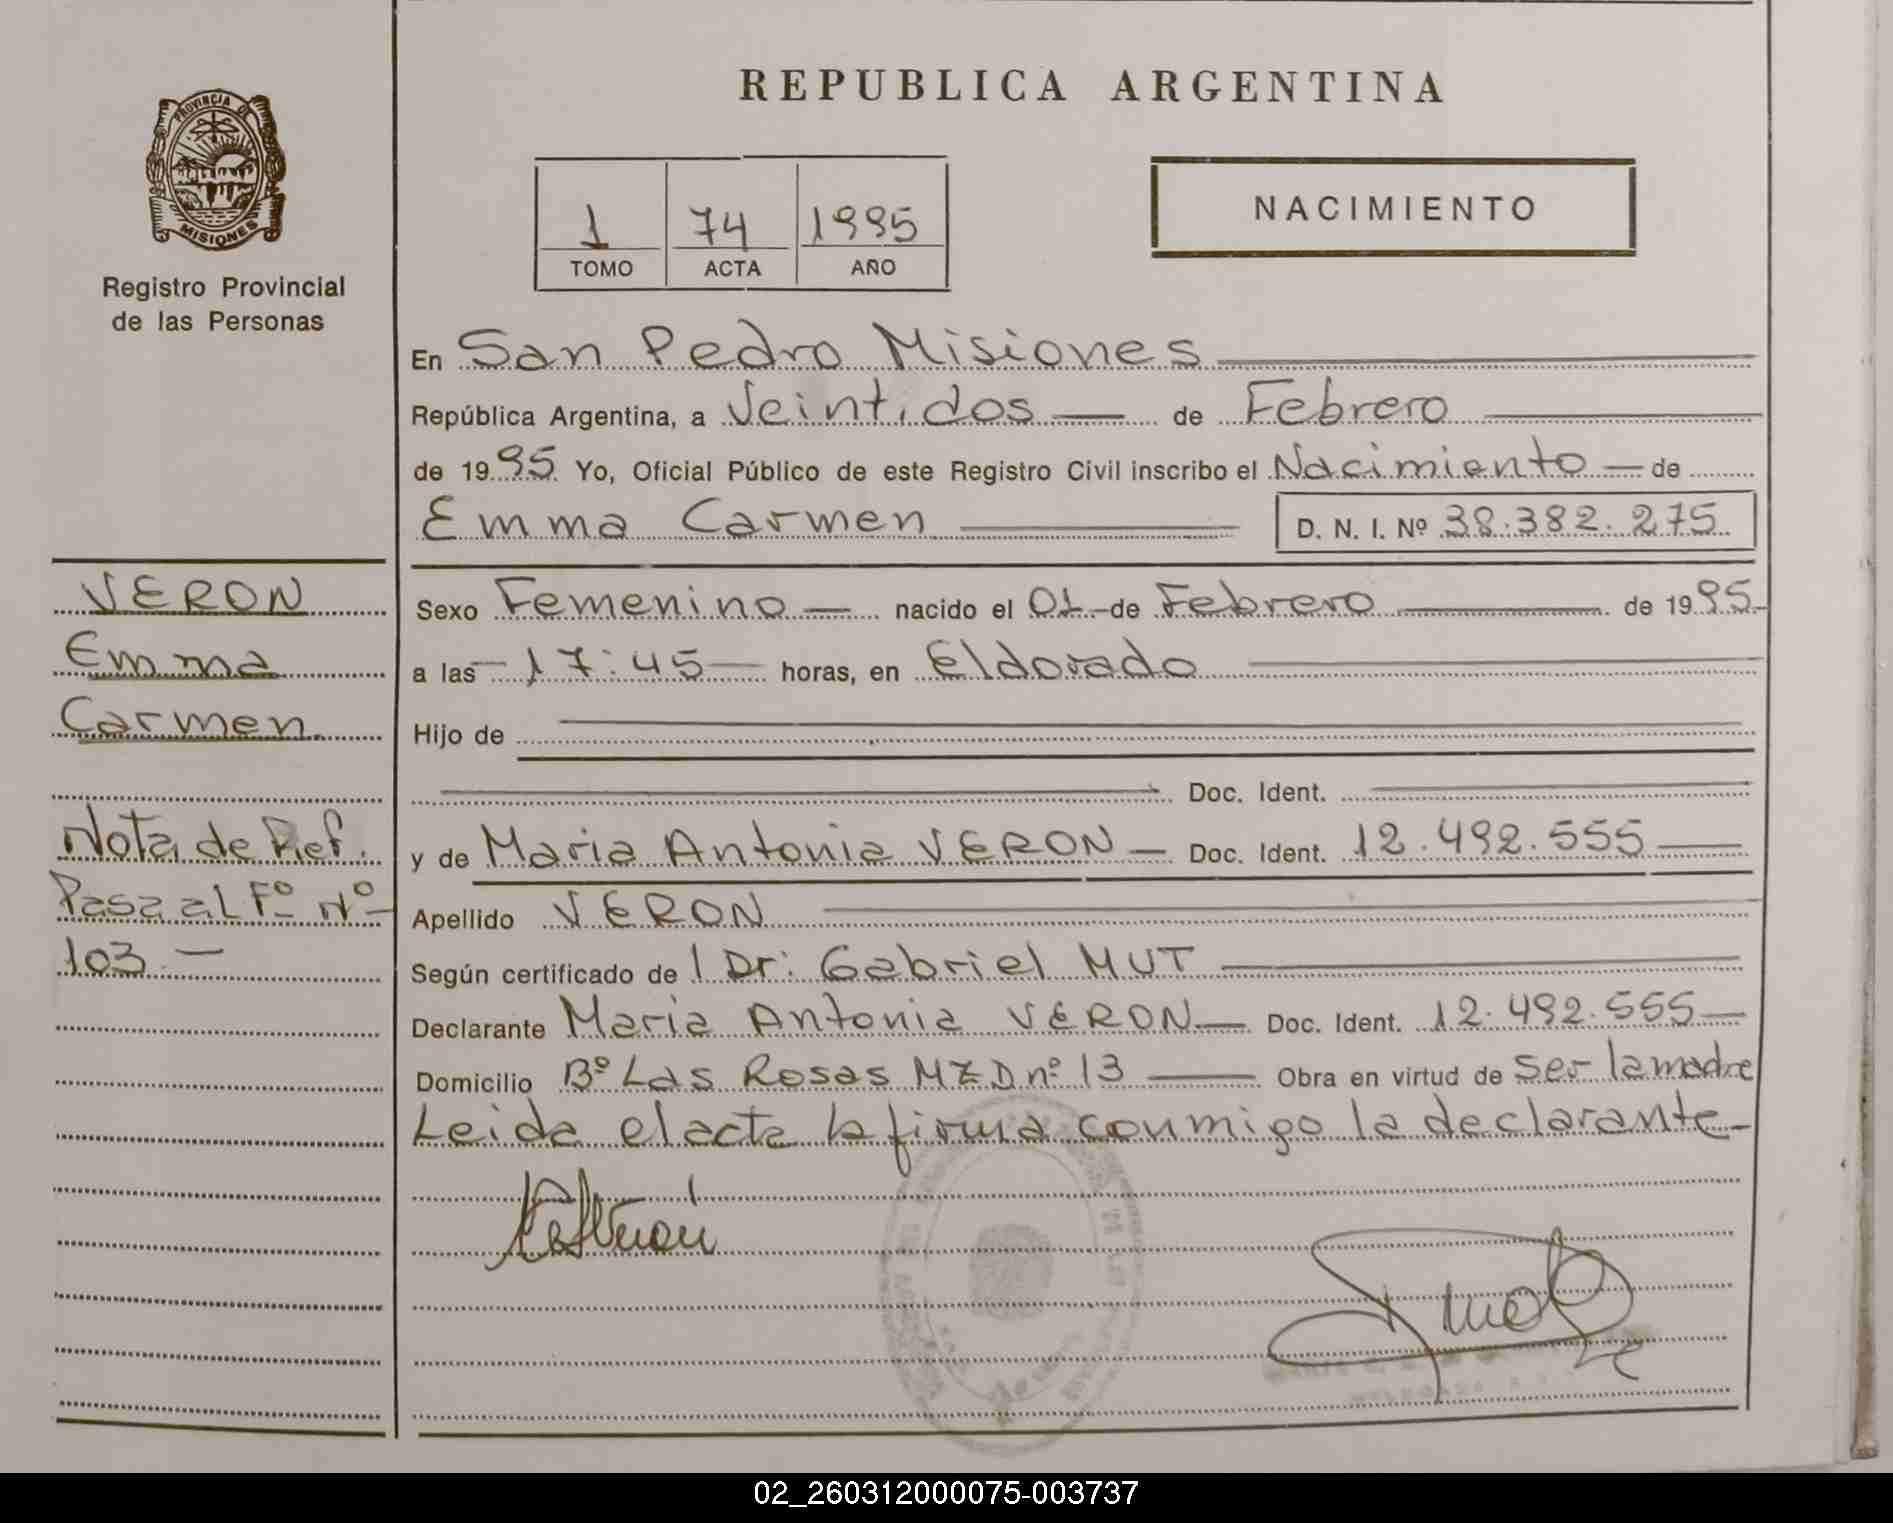 REPUBLICA ARGENTINA
PROVINCIA DE
MISIONES
Registro Provincial
de las Personas
1 74 1995
TOMO ACTA AÑO
NACIMIENTO
En San Pedro Misiones
República Argentina, a Veintidos de Febrero
de 1995 Yo, Oficial Público de este Registro Civil inscribo el Nacimiento de
Emma Carmen D. N. I. Nº 38.382.275
VERON
Emma
Carmen.
Nota de Ref.
Pasa al Fº Nº
103.-
Sexo Femenino nacido el 01 de Febrero de 1995
a las 17:45 horas, en Eldorado
Hijo de
Doc. Ident.
y de Maria Antonia VERON Doc. Ident. 12.492.555
Apellido VERON
Según certificado de l Dr: Gabriel MUT
Declarante Maria Antonia VERON Doc. Ident. 12.492.555
Domicilio Bº Las Rosas MZ D nº 13 Obra en virtud de ser la madre
Leida el acta la firma conmigo la declarante
02_260312000075-003737